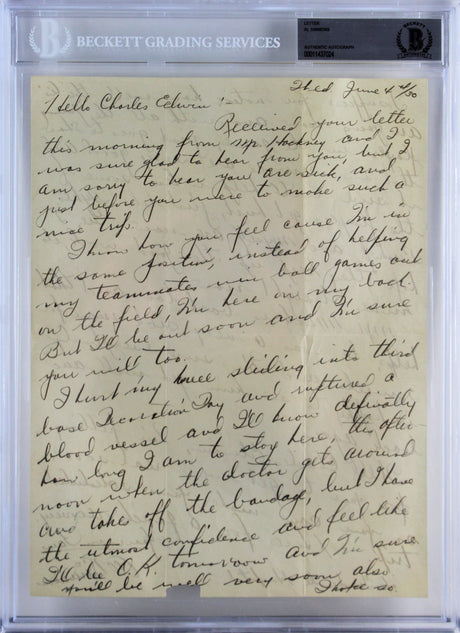 BECKETT GRADING SERVICES
LETTER
AL SIMMONS
AUTHENTIC AUTOGRAPH
00011437024
BECKETT
Wed. June 4 4/30
Hello Charles Edwin :-
Received your letter
this morning from Mr. Hackney and I
was sure glad to hear from you, but I
am sorry to hear you are sick, and
just before you were to make such a
nice trip.
I know how you feel cause I'm in
the same position, instead of helping
my teammates win ball games out
on the field, I'm here on my back.
But I'll be out soon and I'm sure
you will too.
I hurt my knee sliding into third
base Decoration Day and ruptured a
blood vessel and I'll know definatly
how long I am to stay here, this after-
noon when the doctor gets around
and take off the bandage, but I have
the utmost confidence and feel like
I'll be O.K. tomorrow and I'm sure
you'll be well very soon also
I hope so.